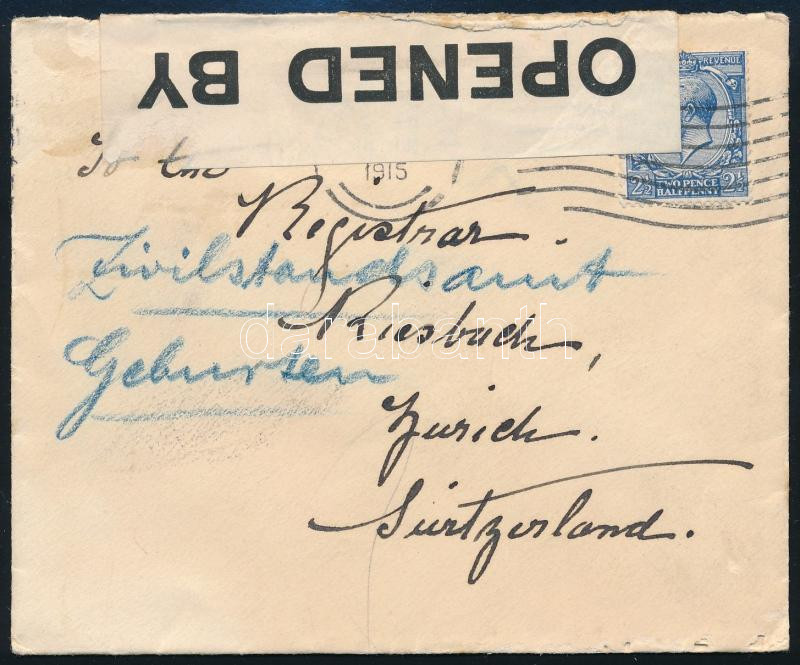 OPENED BY
REVENUE
2½ TWO PENCE HALFPENNY 2½
1915
To the
Registrar
Zivilstandsamt
Riesbach,
Geburten
Zurich.
Switzerland.
darabanth